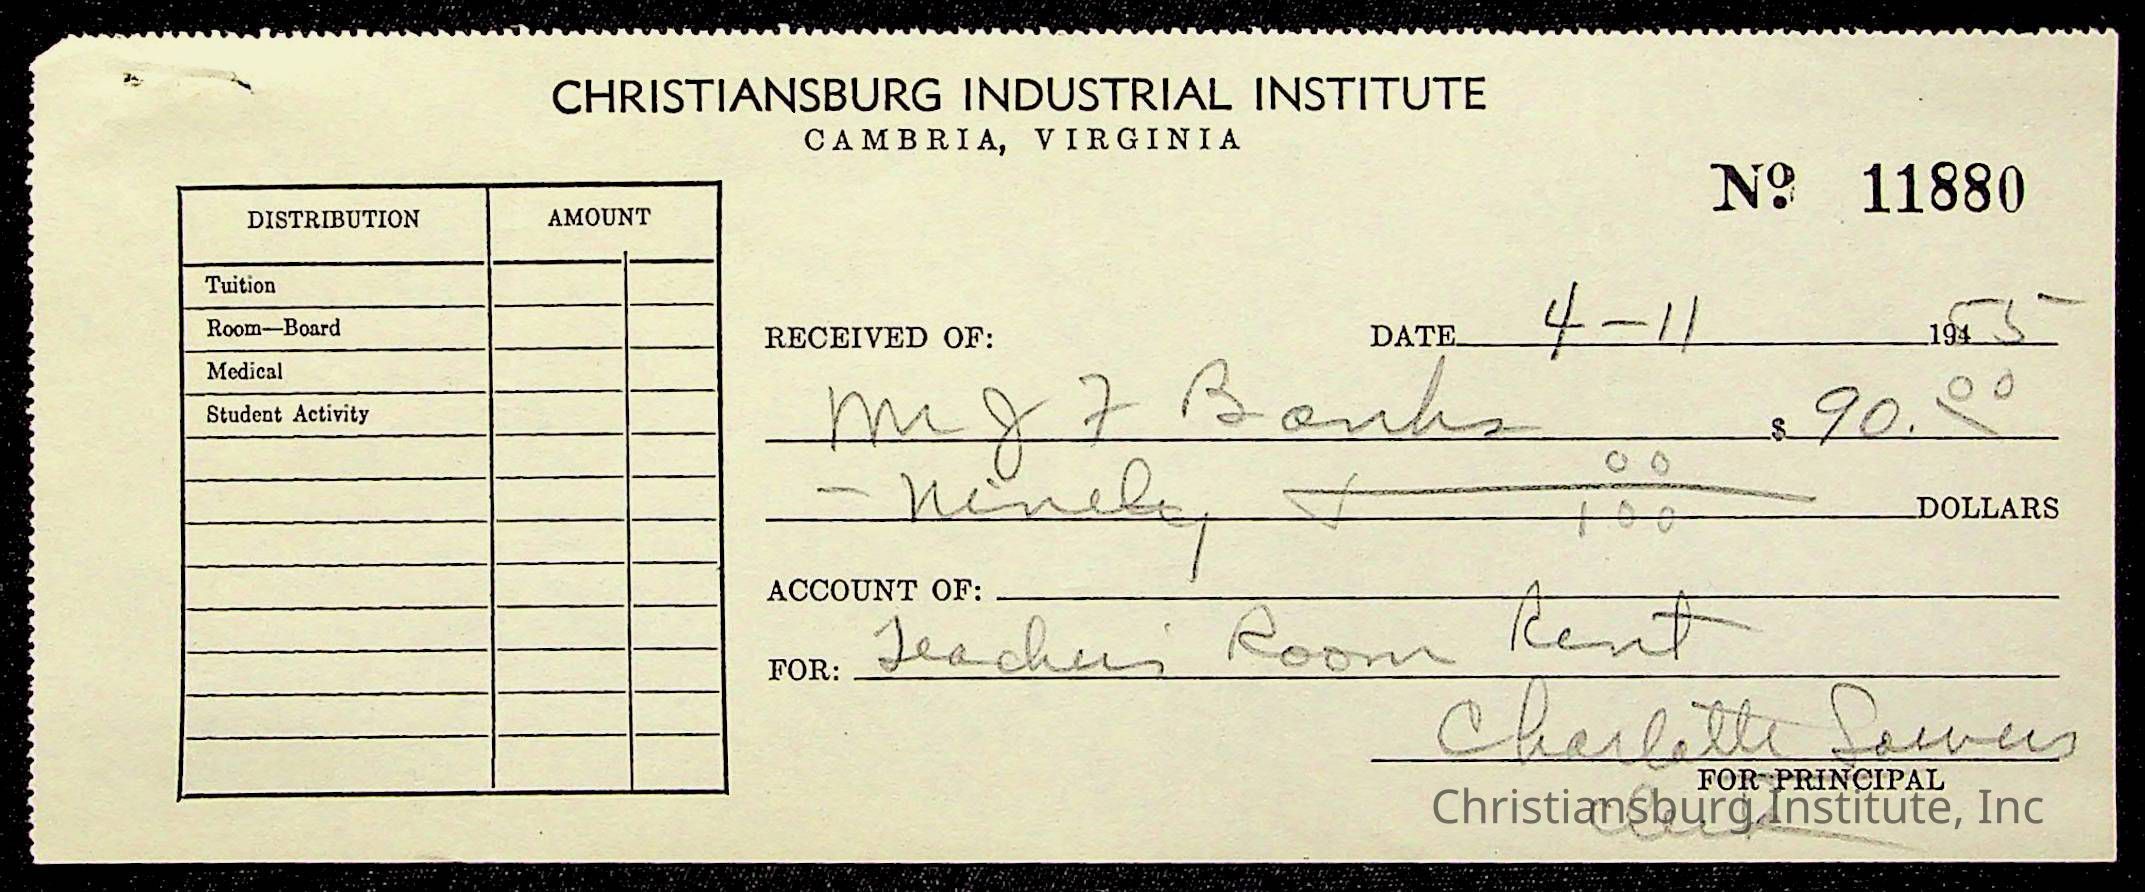 CHRISTIANSBURG INDUSTRIAL INSTITUTE
CAMBRIA, VIRGINIA
Nº 11880
DISTRIBUTION AMOUNT
Tuition
Room—Board
Medical
Student Activity
RECEIVED OF: DATE 4-11 194 55
Mr J F Banks $ 90.00
- Ninety + 00/100 DOLLARS
ACCOUNT OF:
FOR: Teachers Room Rent
Charlotte Sowers
FOR PRINCIPAL
Clerk
Christiansburg Institute, Inc